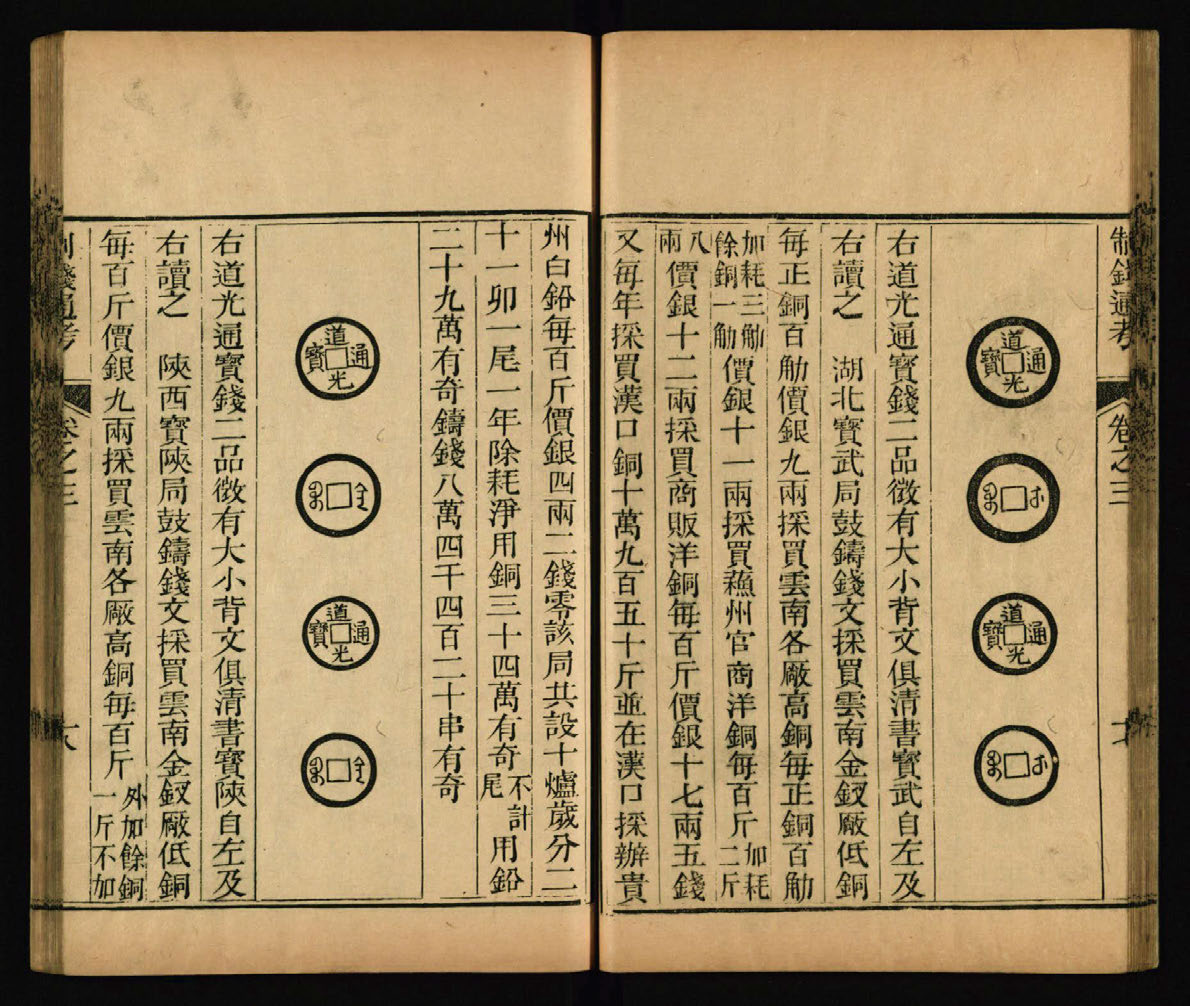 制錢通考
卷之三
道光通寶
道光通寶
右道光通寶錢二品徵有大小背文俱清書寶武自左及
右讀之　湖北寶武局鼓鑄錢文採買雲南金釵廠低銅
每正銅百觔價銀九兩採買雲南各廠高銅每正銅百觔
加耗三觔餘銅一觔價銀十一兩採買蘓州官商洋銅每百斤加耗二斤
八兩價銀十二兩採買商販洋銅每百斤價銀十七兩五錢
又每年採買漢口銅十萬九百五十斤並在漢口採辦貴
州白鉛每百斤價銀四兩二錢零該局共設十爐歲分二
十一卯一尾一年除耗淨用銅三十四萬有奇不計尾用鉛
二十九萬有奇鑄錢八萬四千四百二十串有奇
道光通寶
道光通寶
右道光通寶錢二品徵有大小背文俱清書寶陝自左及
右讀之　陝西寶陝局鼓鑄錢文採買雲南金釵廠低銅
每百斤價銀九兩採買雲南各廠高銅每百斤外加餘銅一斤不加
制錢通考
卷之三